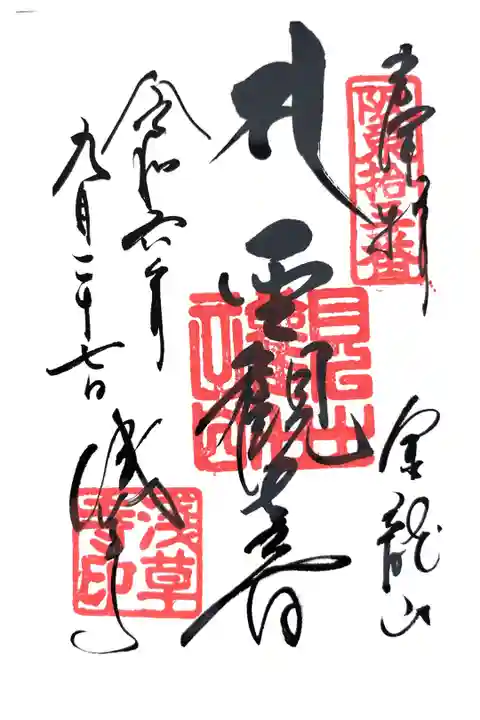 奉拝
阪東拾三番
金龍山
聖觀音
令和六年
九月二十七日
浅草寺
淺草
寺印